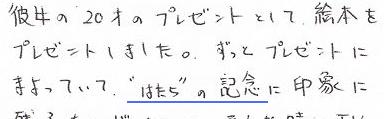 彼女の 20才の プレゼントとして、絵本を
プレゼントしました。ずっと プレゼントに
まよっていて、"はたち"の 記念に 印象に